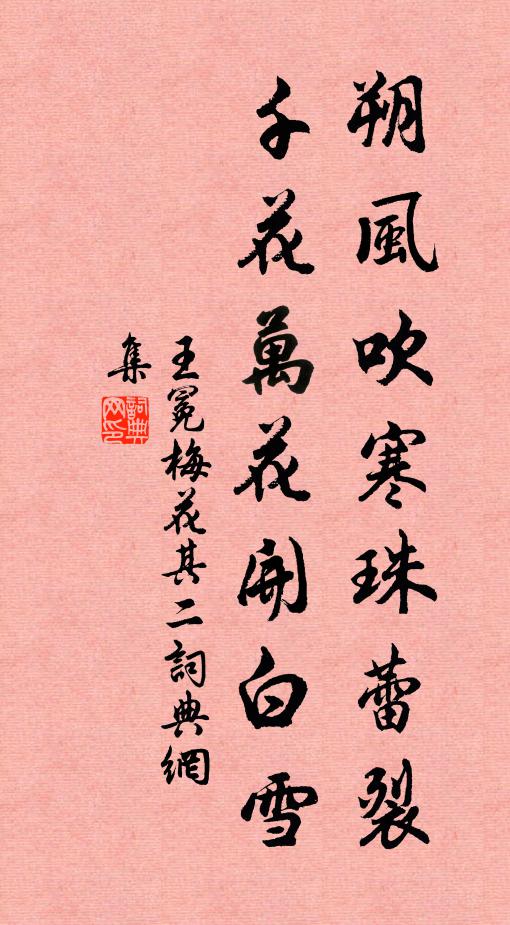 朔風吹寒珠蕾裂
千花萬花開白雪
王冕梅花其二詞典網
集
詞典
网印